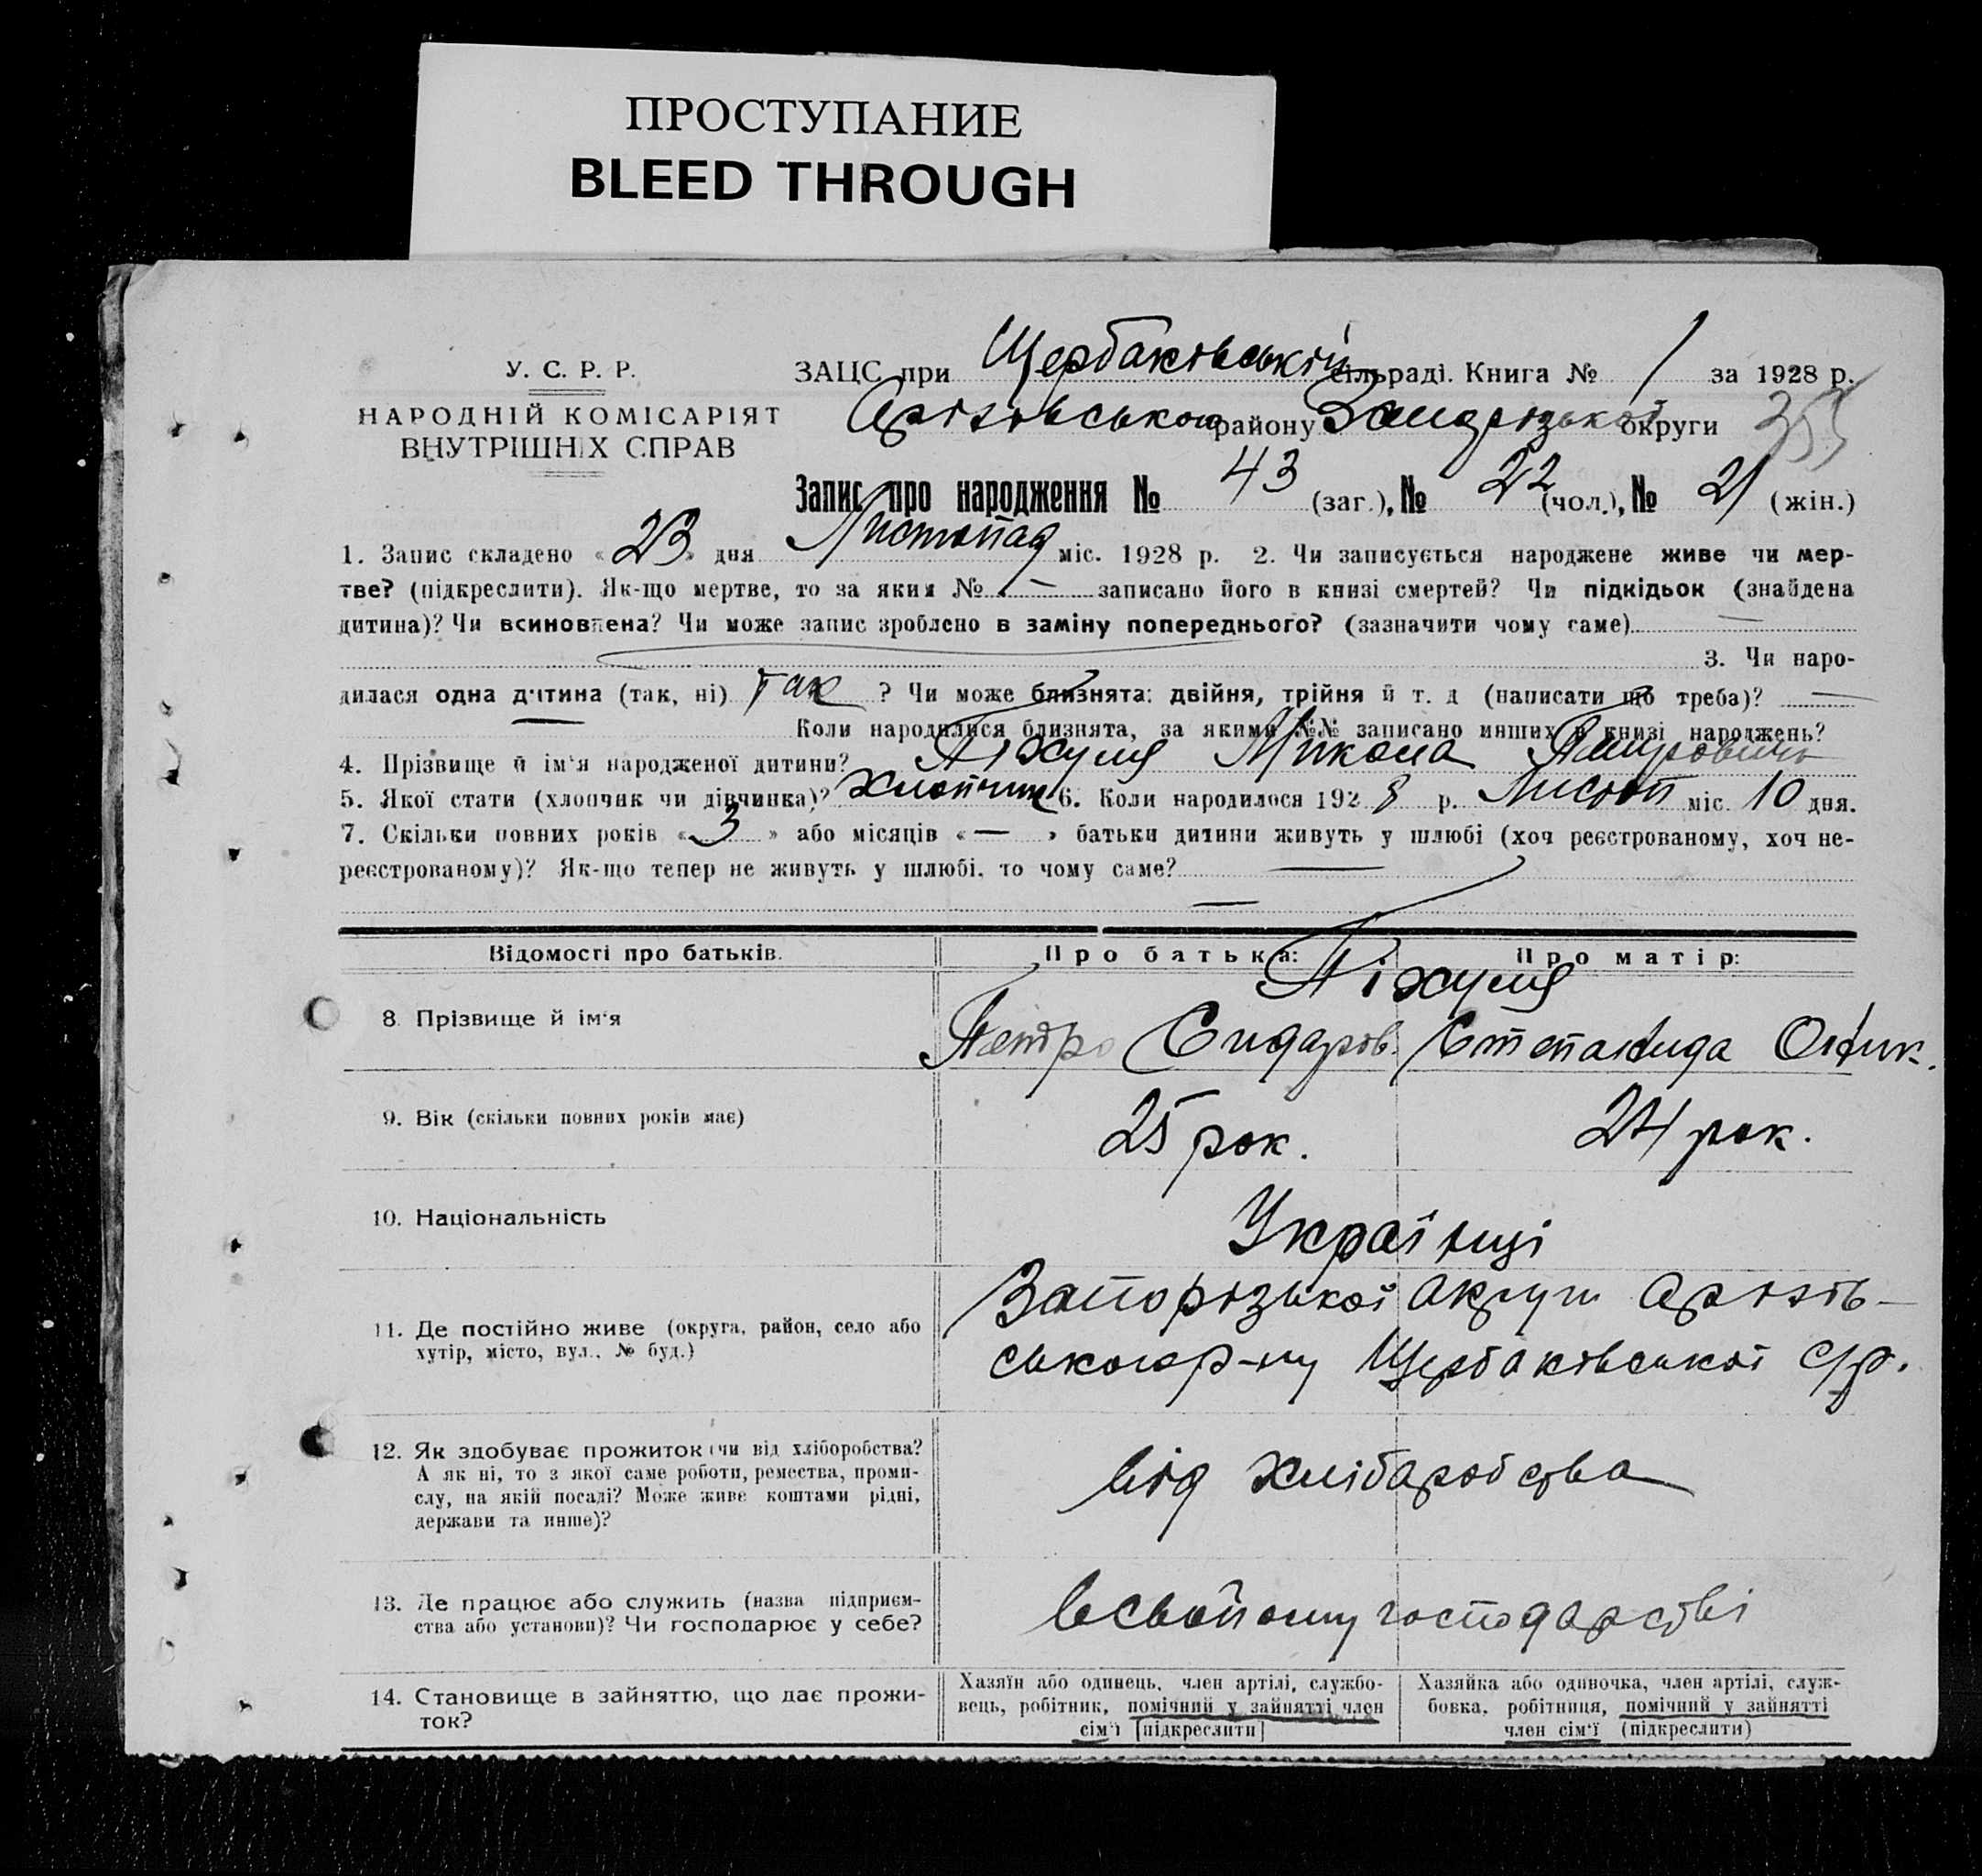 ПРОСТУПАНИЕ
BLEED THROUGH
У. С. Р. Р.
НАРОДНІЙ КОМІСАРІЯТ
ВНУТРІШНІХ СПРАВ
ЗАЦС при Щербаківській сільраді. Книга № 1 за 1928 р.
Оріхівського району Запорізької округи 355
Запис про народження № 43 (заг.), № 22 (чол.), № 21 (жін.)
1. Запис складено « 23 » дня Листопад міс. 1928 р. 2. Чи записується народжене живе чи мер-
тве? (підкреслити). Як-що мертве, то за яким № — записано його в книзі смертей? Чи підкідьок (знайдена
дитина)? Чи всиновлена? Чи може запис зроблено в заміну попереднього? (зазначити чому саме) —
3. Чи наро-
дилася одна дитина (так, ні) так ? Чи може близнята: двійня, трійня й т. д (написати що треба)? —
Коли народилися близнята, за якими №№ записано инших в книзі народжень?
4. Прізвище й ім'я народженої дитини? Піхуля Микола Петрович
5. Якої стати (хлопчик чи дівчинка)? хлопчик 6. Коли народилося 1928 р. Листоп міс. 10 дня.
7. Скільки повних років « 3 » або місяців « — » батьки дитини живуть у шлюбі (хоч реєстрованому, хоч не-
реєстрованому)? Як-що тепер не живуть у шлюбі, то чому саме? —
—
Відомості про батьків. Про батька: Про матір:
Піхуля
8. Прізвище й ім'я Петро Сидаров. Степанида Оник.
9. Вік (скільки повних років має) 25 рок. 24 рок.
10. Національність Українці
11. Де постійно живе (округа, район, село або
хутір, місто, вул., № буд.)
Запорізької акруги Оріхів-
ського р-ну Щербаківської с/р.
12. Як здобуває прожиток (чи від хліборобства?
А як ні, то з якої саме роботи, ремества, проми-
слу, на якій посаді? Може живе коштами рідні,
держави та инше)?
від хлібаробства
13. Де працює або служить (назва підприєм-
ства або установи)? Чи господарює у себе?
в свойому господарстві
14. Становище в зайняттю, що дає прожи-
ток?
Хазяїн або одинець, член артілі, службо-
вець, робітник, помічний у зайнятті член
сім'ї [підкреслити]
Хазяйка або одиночка, член артілі, служ-
бовка, робітниця, помічний у зайнятті
член сім'ї (підкреслити)